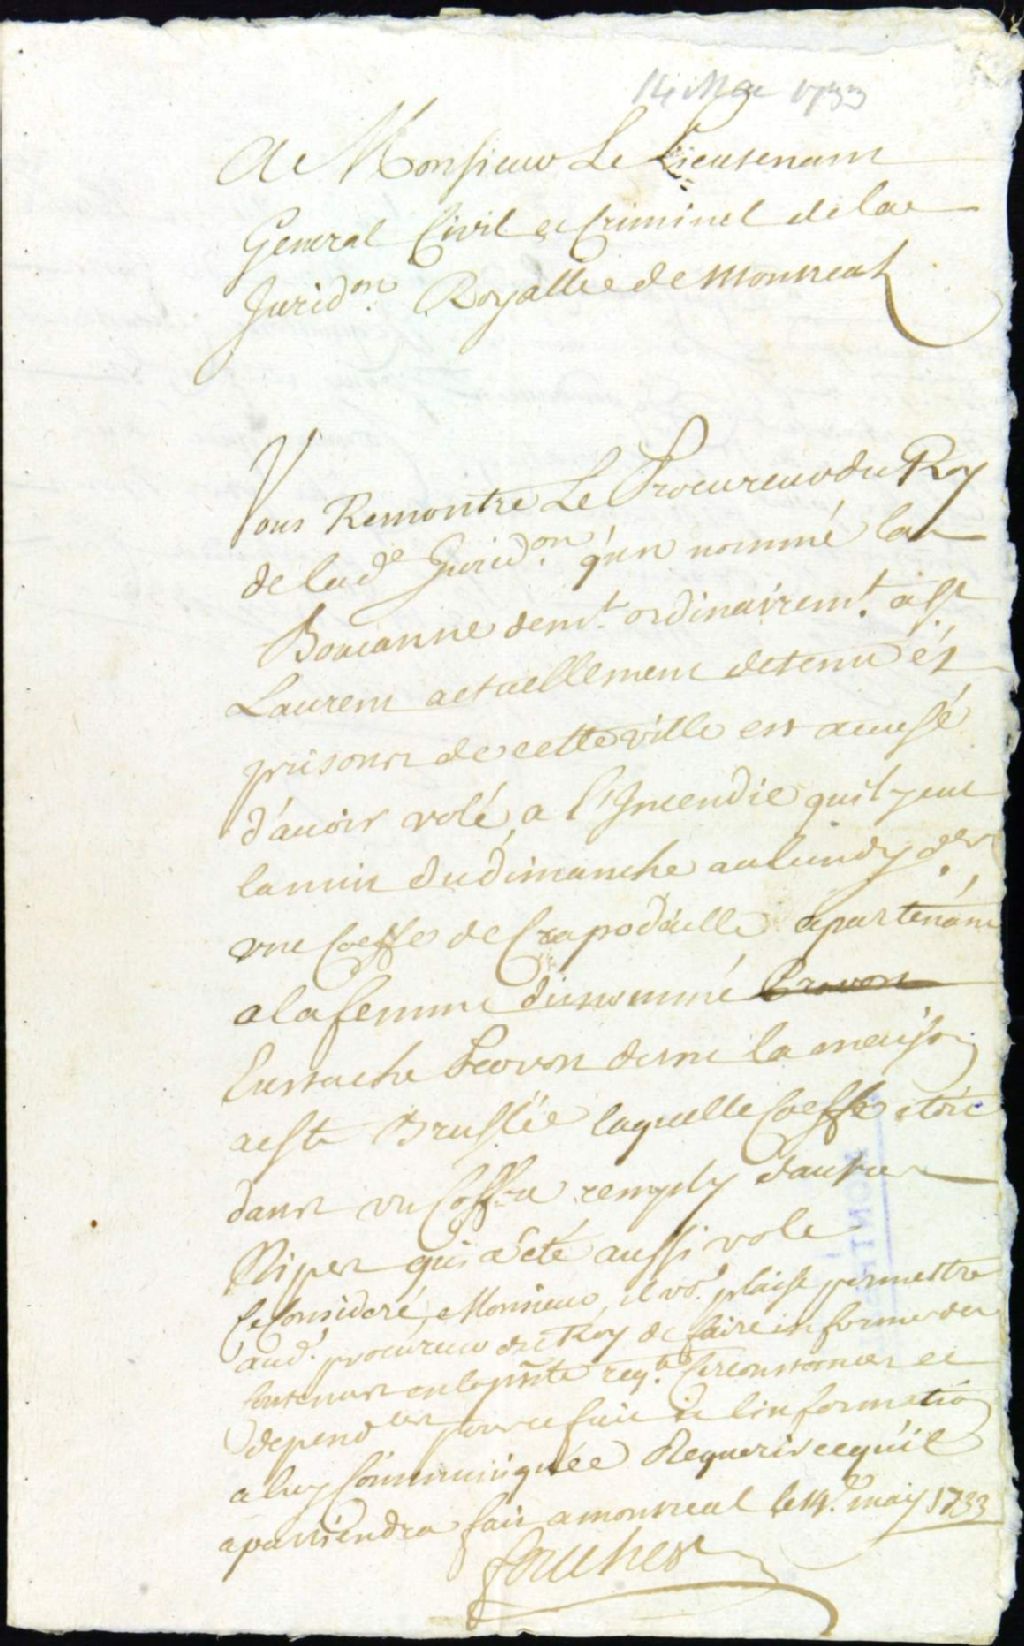 14 Mai 1733
A Monsieur Le Lieutenant
General Civil et Criminel de la
Juridon. Royalle de Montreal
Vous Remontre Le Procureur du Roy
de lade Juridon. qu'un nommé la
Boucanne demt. ordinairemt. a St.
Laurent actuellement detenu és
prisons de cette ville est accusé
d'avoir volé a l'Incendie quil y eut
la nuit du dimanche au lundy der.
une Coeffe de Crapodaille apartenant
a la femme du nommé Provon
Eustache Provon dont la maison
a esté Bruslée laquelle Coeffe étoit
dans un Coffre remply dautres
Nipes qui a eté aussi volé
Ce Consideré, Monsieur, il vo.s plaise permettre
aud. procureur du Roy de faire informer du
contenu en la pnte reqte. Circonstances et
dependces pour ce fait et l'information
a luy Communiquée Requerir ce qu'il
apartiendra fait a montreal le 14e. may 1733
foucher